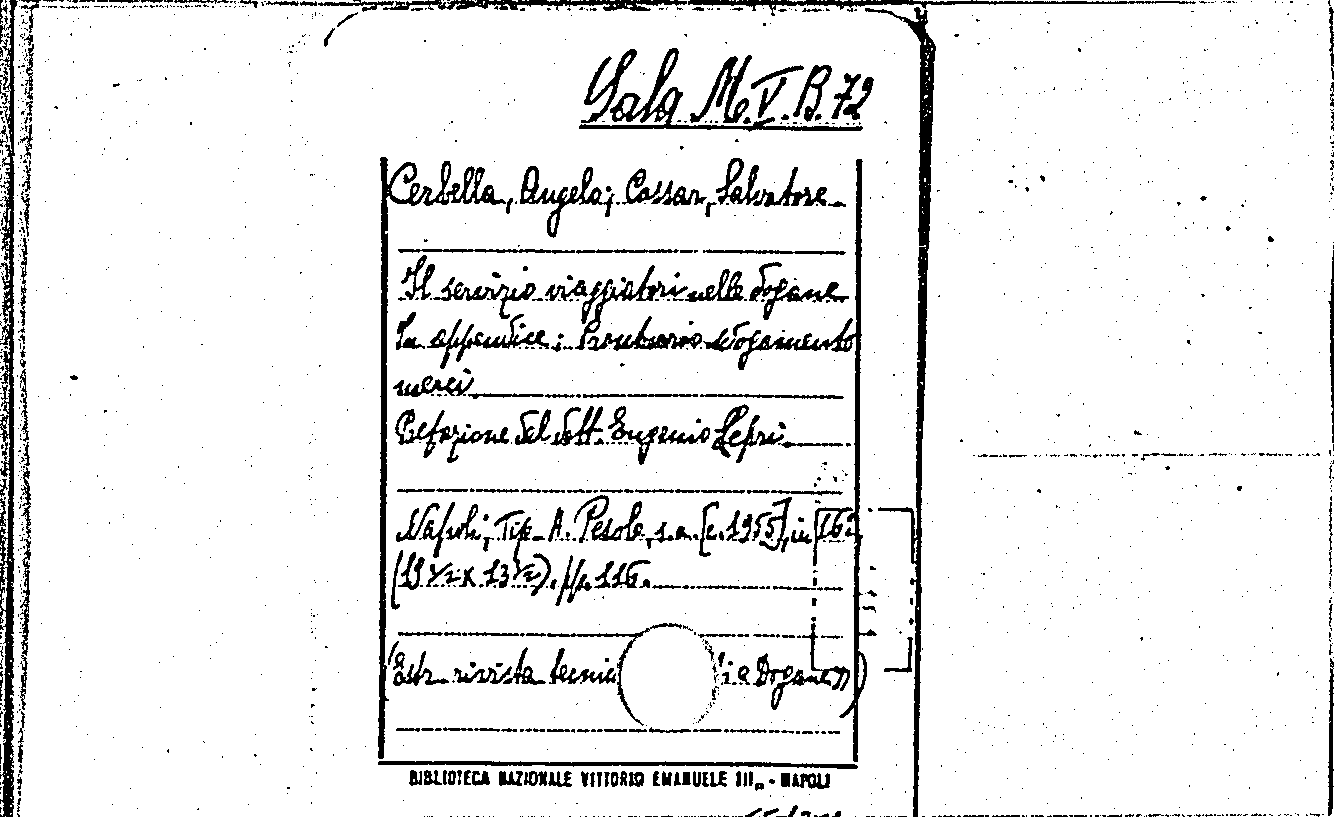 Sala M. V. B. 72
Cerbella, Angelo; Cassar, Salvatore
Il servizio viaggiatori nelle dogane
In appendice: Prontuario sdoganamento
merci
Prefazione del dott. Eugenio Lepri
Napoli, Tip. A. Pesole, s.a. [c. 1955], in 16°,
(19 ½ x 13 ½). pp. 116.
(Estr. rivista tecnic Dogane")
BIBLIOTECA NAZIONALE VITTORIO EMANUELE III„ - NAPOLI